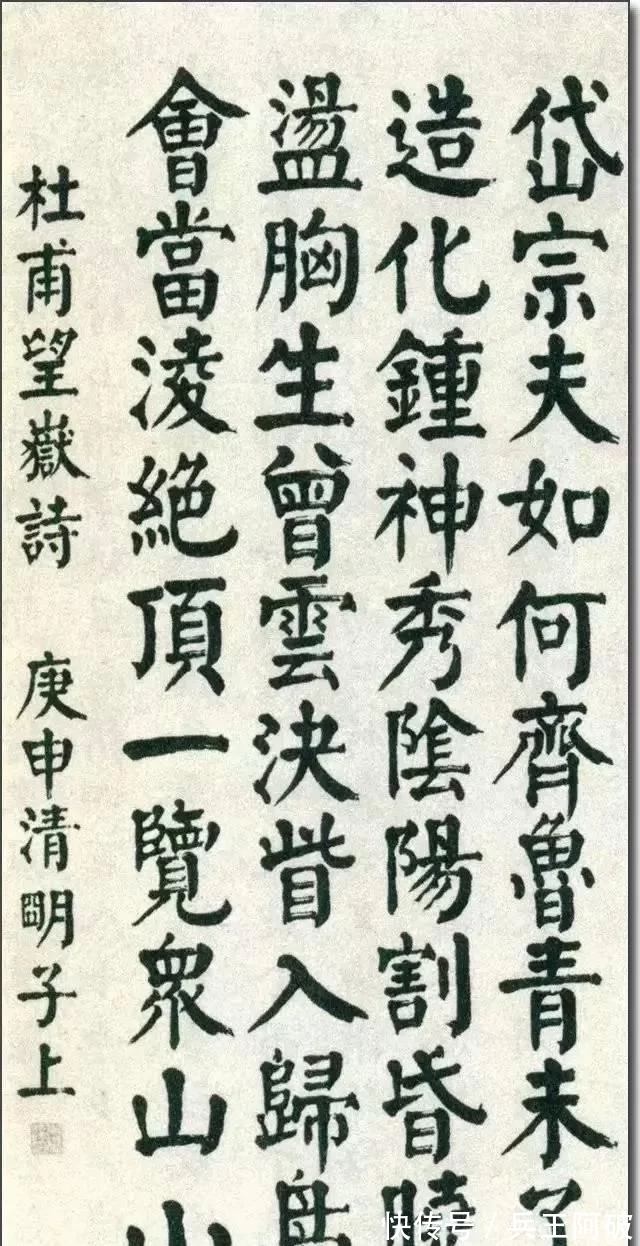 岱宗夫如何齊魯青未
造化鍾神秀陰陽割昏
盪胸生曾雲決眥入歸
會當淩絶頂一覽衆山
杜甫望嶽詩 庚申清朙子上
快传号 / 兵王阿破